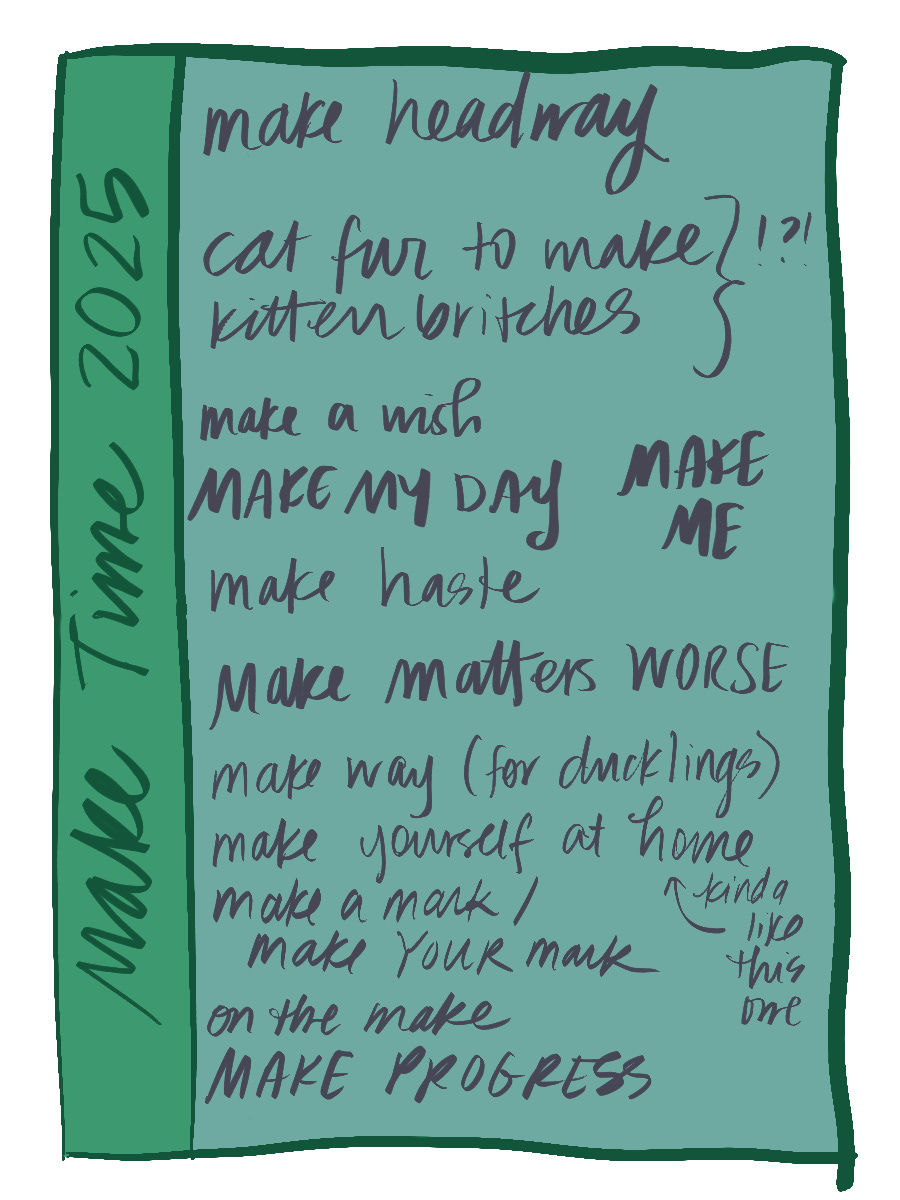 Make Time 2025
make headway
cat fur to make
kitten britches
!?!
make a wish
MAKE MY DAY
MAKE
ME
make haste
Make matters WORSE
make way (for ducklings)
make yourself at home
kinda
like
this
one
make a mark /
make YOUR mark
on the make
MAKE PROGRESS